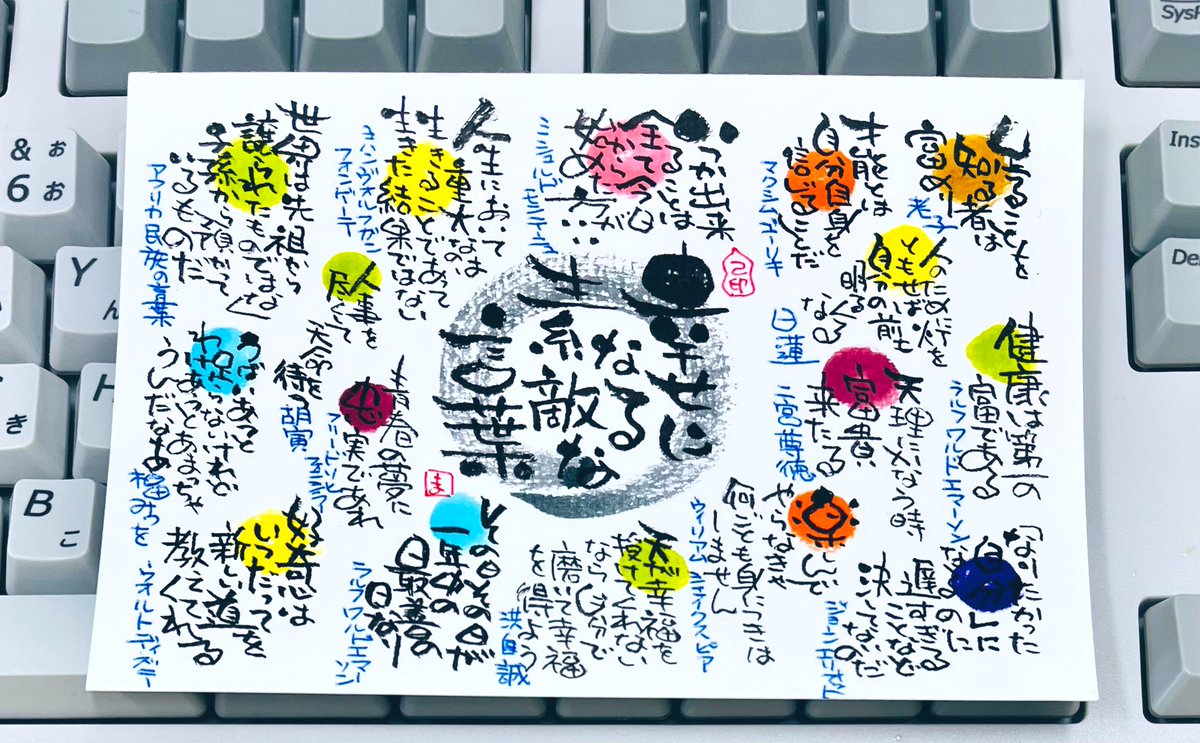 幸せに
なる
素敵な
言葉。
足ることを
知る者は
富めり
老子
才能とは
自分自身を
信じることだ
マクシムゴーリキ
いつか出来
ることは
全て今日
ミシェルド
モンテーニュ
人生において
重大なのは
生きることであって
生きた結果ではない
ヨハンヴォルフガン
フォンゲーテ
世界は先祖から
譲られたものではなく
子孫から預かって
いるものだ
アフリカ民族の言葉
健康は第一の
富である
ラルフワルドエマーソン
人のために灯を
ともせば
自分の前
明るく
なる
日蓮
天理にかなう時
富貴
来たる
二宮尊徳
人事を
尽くして
天命を
待つ
胡寅
青春の夢に
忠実であれ
フリードリヒ
つまづいあっと
わけ足らないけれど
あっとあまっちゃ
うんだなあ
相田みつを
「なりたかった
自分」に
なるのに
遅すぎる
ことなど
決してないのだ
ジョージエリオット
楽しんで
やらなきゃ
何ごとも身につきは
しません
ウィリアムシェイクスピア
天が幸福を
授けてくれない
なら自分で
磨いて幸福
を得よう
洪自誠
その日その日が
一年中の
最善の
日なり
ラルフワルドエマー
ソン
好奇心は
いつだって
新しい道を
教えてくれる
ウォルトディズニー
&
6
お
Y
ん
き
H
B
こ
SysR
Ins
Del